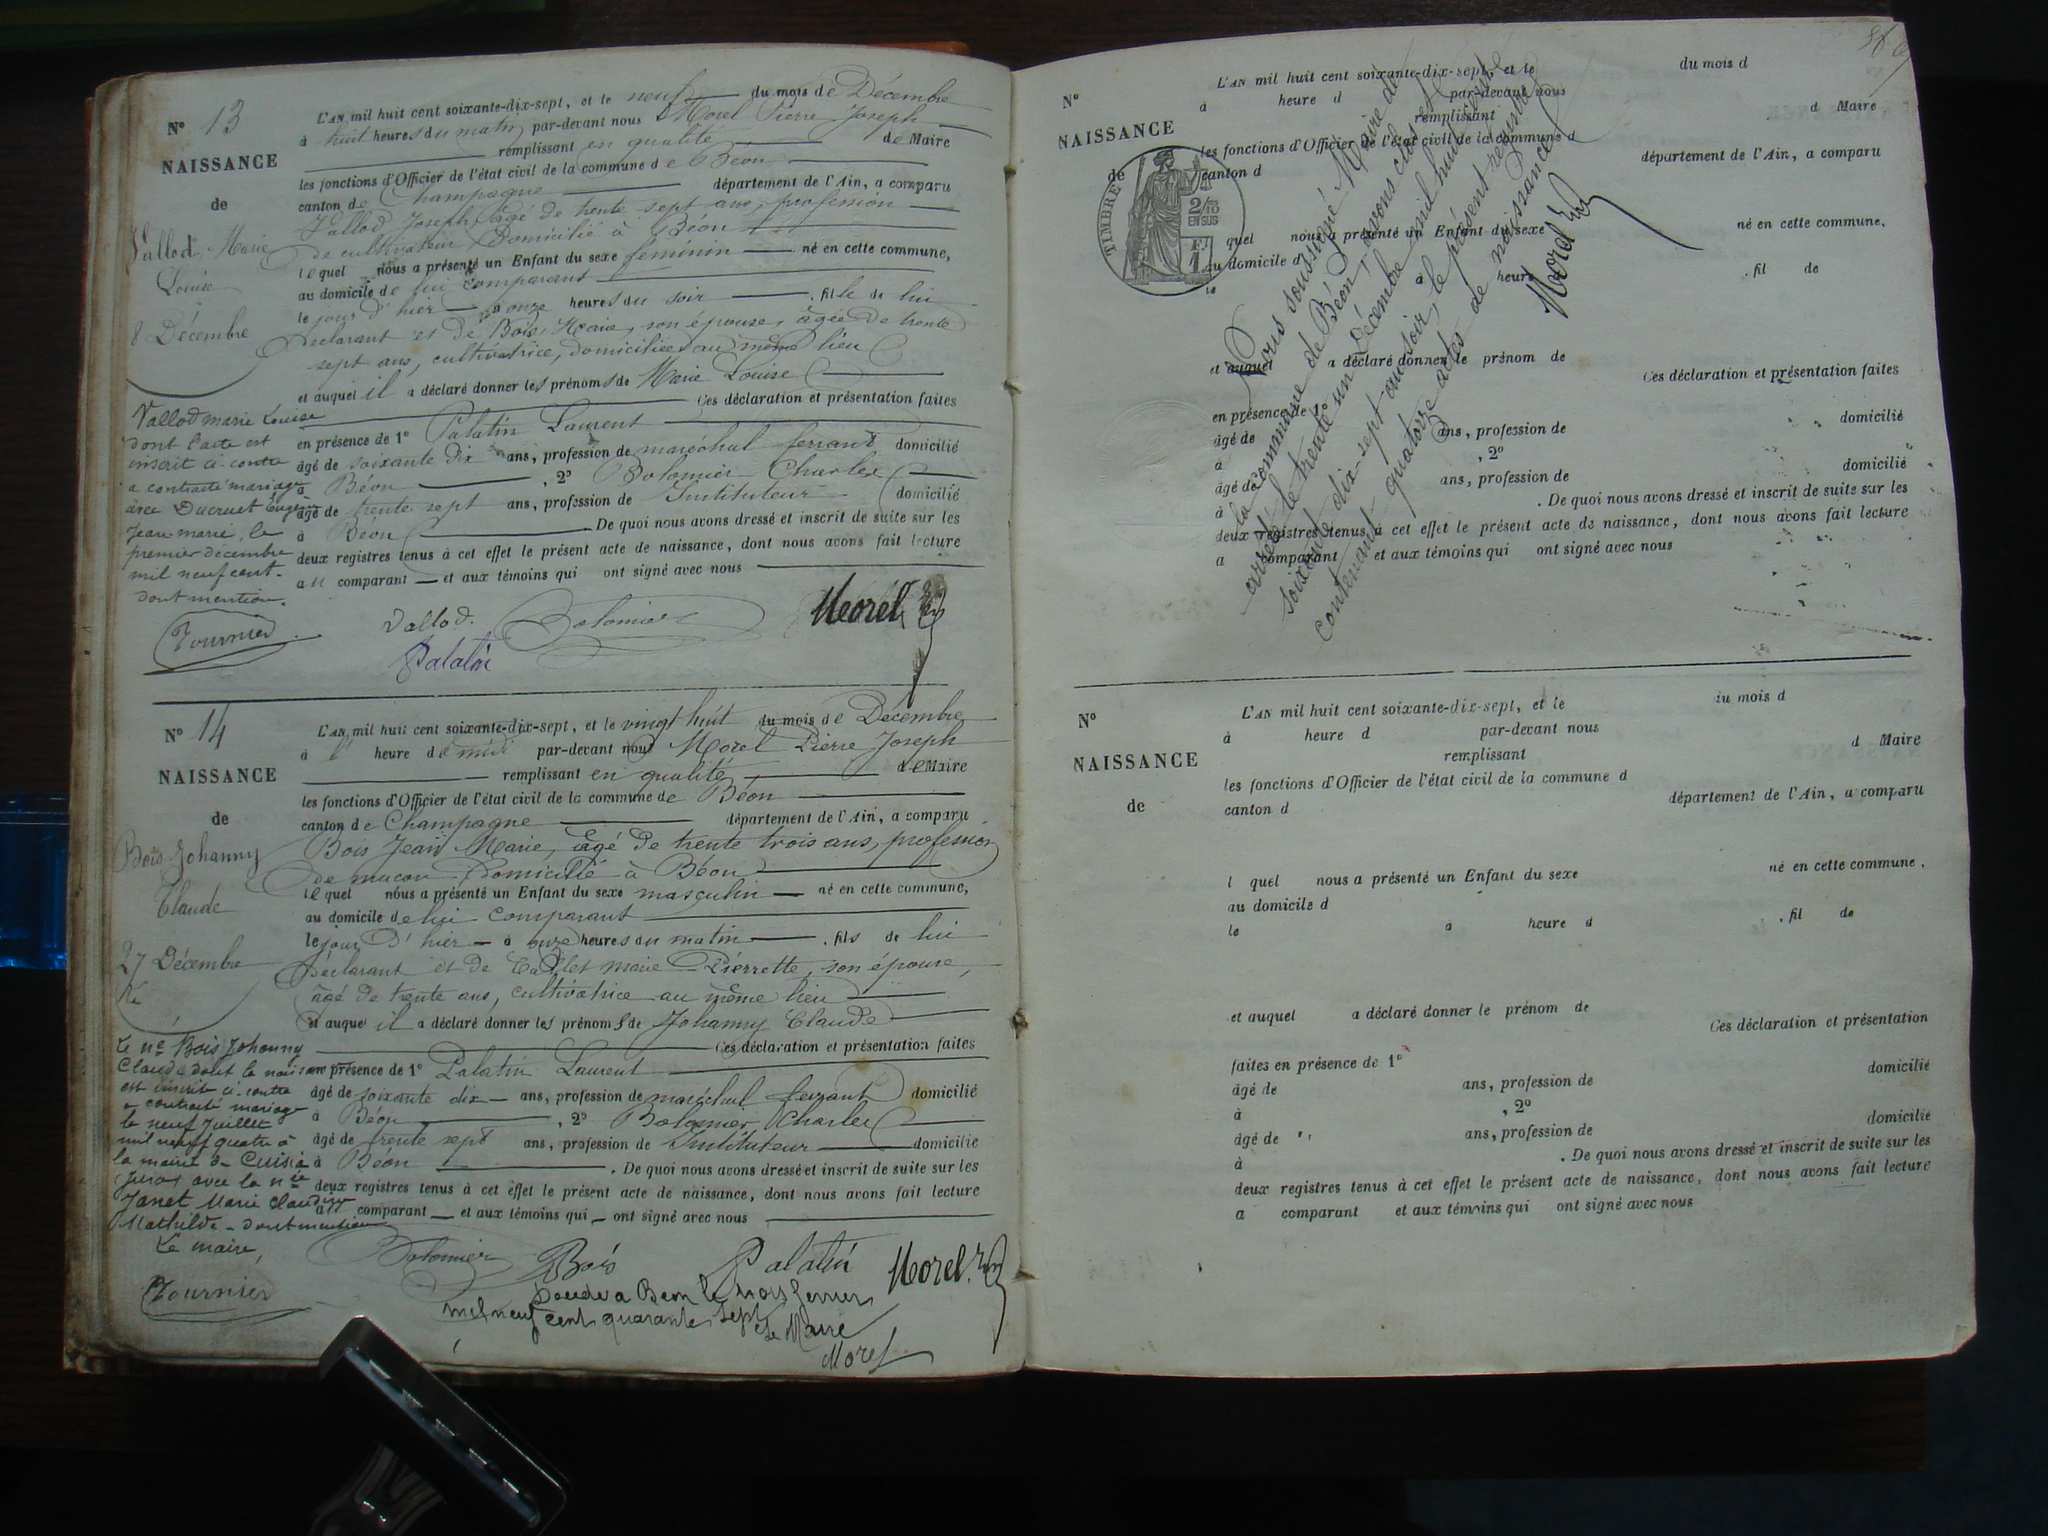 N° 13
NAISSANCE
de
Vallod Marie
Louise
8 Décembre
L'AN mil huit cent soixante-dix-sept, et le neuf du mois de Décembre
à huit heures du matin par-devant nous Morel Pierre Joseph
remplissant en qualité de Maire
les fonctions d'Officier de l'état civil de la commune de Béon
canton de Champagne département de l'Ain, a comparu
Vallod Joseph, âgé de trente sept ans, profession
de cultivateur Domicilié à Béon
lequel nous a présenté un Enfant du sexe féminin né en cette commune,
au domicile de lui comparant
le jour d'hier à onze heures du soir fille de lui
Déclarant et de Bois Marie, son épouse, âgée de trente
sept ans, cultivatrice, domiciliée au même lieu
et auquel il a déclaré donner les prénoms de Marie Louise
Ces déclaration et présentation faites
en présence de 1° Palatin Laurent
âgé de soixante dix ans, profession de maréchal ferrant domicilié
à Béon, 2° Bolomier Charles
âgé de trente sept ans, profession de Instituteur domicilié
à Béon. De quoi nous avons dressé et inscrit de suite sur les
deux registres tenus à cet effet le présent acte de naissance, dont nous avons fait lecture
au comparant et aux témoins qui ont signé avec nous
Vallod marie Louise
dont l'acte est
inscrit ci-contre
a contracté mariage
avec Ducruet Eugène
Jean marie, le
premier décembre
mil neuf cent.
dont mention.
Tournier
Vallod. Bolomier Morel
Palatin
N° 14
NAISSANCE
de
Bois Johanny
Claude
27 Décembre
L'AN mil huit cent soixante-dix-sept, et le vingt huit du mois de Décembre
à 1 heure de midi par-devant nous Morel Pierre Joseph
remplissant en qualité de Maire
les fonctions d'Officier de l'état civil de la commune de Béon
canton de Champagne département de l'Ain, a comparu
Bois Jean Marie, âgé de trente trois ans, profession
de maçon Domicilié à Béon
lequel nous a présenté un Enfant du sexe masculin né en cette commune,
au domicile de lui comparant
le jour d'hier à onze heures du matin fils de lui
Déclarant et de marie Pierrette, son épouse,
âgé de trente ans, cultivatrice au même lieu
et auquel il a déclaré donner les prénoms de Johanny Claude
Ces déclaration et présentation faites
en présence de 1° Palatin Laurent
âgé de soixante dix ans, profession de maréchal ferrant domicilié
à Béon, 2° Bolomier Charles
âgé de trente sept ans, profession de Instituteur domicilié
à Béon. De quoi nous avons dressé et inscrit de suite sur les
deux registres tenus à cet effet le présent acte de naissance, dont nous avons fait lecture
au comparant et aux témoins qui ont signé avec nous
Le né Bois Johanny
Claude dont la naissance
est inscrite ci-contre
a contracté mariage
le neuf Juillet
mil neuf quatre à
la mairie de Cuisia
Jura avec la née
Janet Marie Claudine
Mathilde - dont mention
Le maire,
Tournier
Bolomier Bois Palatin Morel
Décédé a Beon le trois fevrier
mil neuf cent quarante sept
Le Maire
Morel
N°
NAISSANCE
de
TIMBRE
2/10
EN SUS
L'AN mil huit cent soixante-dix-sept, et le du mois d
à heure d par-devant nous
remplissant d Maire
les fonctions d'Officier de l'état civil de la commune d
canton d département de l'Ain, a comparu
l quel nous a présenté un Enfant du sexe né en cette commune.
au domicile d
le à heure . fil de
et auquel a déclaré donner le prénom de
Ces déclaration et présentation faites
en présence de 1°
âgé de ans, profession de domicilié
à , 2°
âgé de ans, profession de domicilié
à . De quoi nous avons dressé et inscrit de suite sur les
deux registres tenus à cet effet le présent acte de naissance, dont nous avons fait lecture
a comparant et aux témoins qui ont signé avec nous
Nous soussigné Maire de
la commune de Béon, avons clos et
arrêté le trente un Décembre mil huit cent
soixante dix-sept au soir, le présent registre
contenant quatorze actes de naissance
Morel
N°
NAISSANCE
de
L'AN mil huit cent soixante-dix-sept, et le du mois d
à heure d par-devant nous
remplissant d Maire
les fonctions d'Officier de l'état civil de la commune d
canton d département de l'Ain, a comparu
l quel nous a présenté un Enfant du sexe né en cette commune.
au domicile d
le a heure d . fil de
et auquel a déclaré donner le prénom de
Ces déclaration et présentation
faites en présence de 1°
âgé de ans, profession de domicilié
à , 2°
âgé de ans, profession de domicilié
à . De quoi nous avons dressé et inscrit de suite sur les
deux registres tenus à cet effet le présent acte de naissance, dont nous avons fait lecture
a comparant et aux témoins qui ont signé avec nous